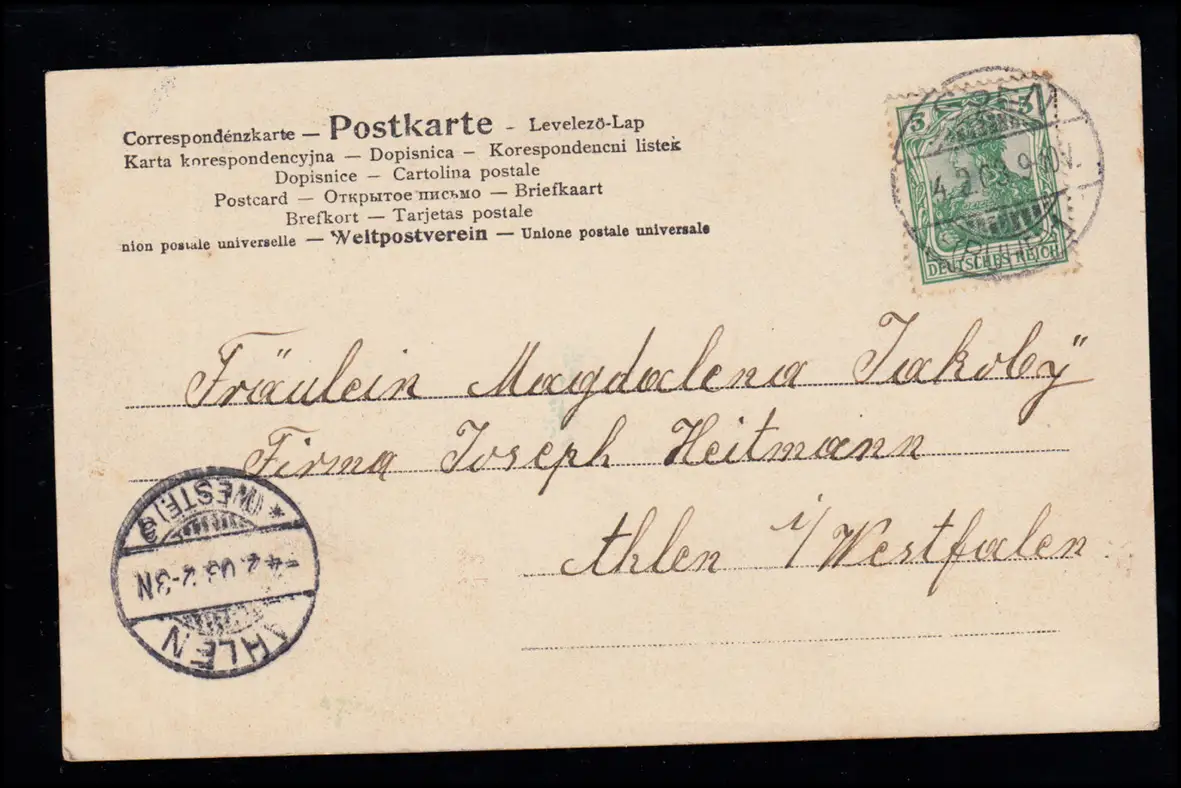 Correspondénzkarte — Postkarte - Levelezö-Lap
Karta korespondencyjna — Dopisnica — Korespondencni listek
Dopisnice — Cartolina postale
Postcard — Открытое письмо — Briefkaart
Brefkort — Tarjetas postale
nion postale universelle — Weltpostverein — Unione postale universale
5 5
4.2.03. 9-10V.
DEUTSCHES REICH
Fräulein Magdalena Jakoby"
Firma Joseph Heitmann
Ahlen i/Westfalen
* (WESTF.)
-4.2.03.2-3N
AHLEN